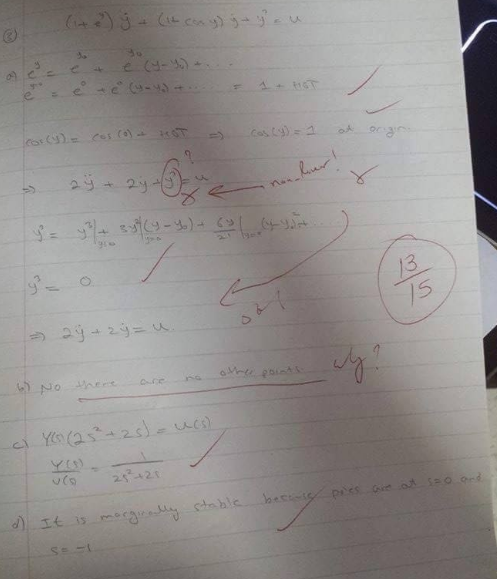 (1+e^y) ÿ + (1+ cos y) ẏ + y³ = u
a) e^y = e^y₀ + e^y₀ (y-y₀) + ...
= e⁰ + e⁰ (y-y₀) + ... = 1 + HOT
cos(y) = cos(0) + HOT ⇒ cos(y) = 1 at origin
?
⇒ 2ÿ + 2ẏ + y³ = u
non-linear!
y³ = y³| + 3y²|(y-y₀) + 6y/2!| (y-y₀)² + ...
y³ = 0
13/15
⇒ 2ÿ + 2ẏ = u
b) No there are no other points
why?
c) Y(s)(2s² + 2s) = U(s)
Y(s)/U(s) = 1/2s²+2s
d) It is marginally stable because poles are at s=0 and
s = -1